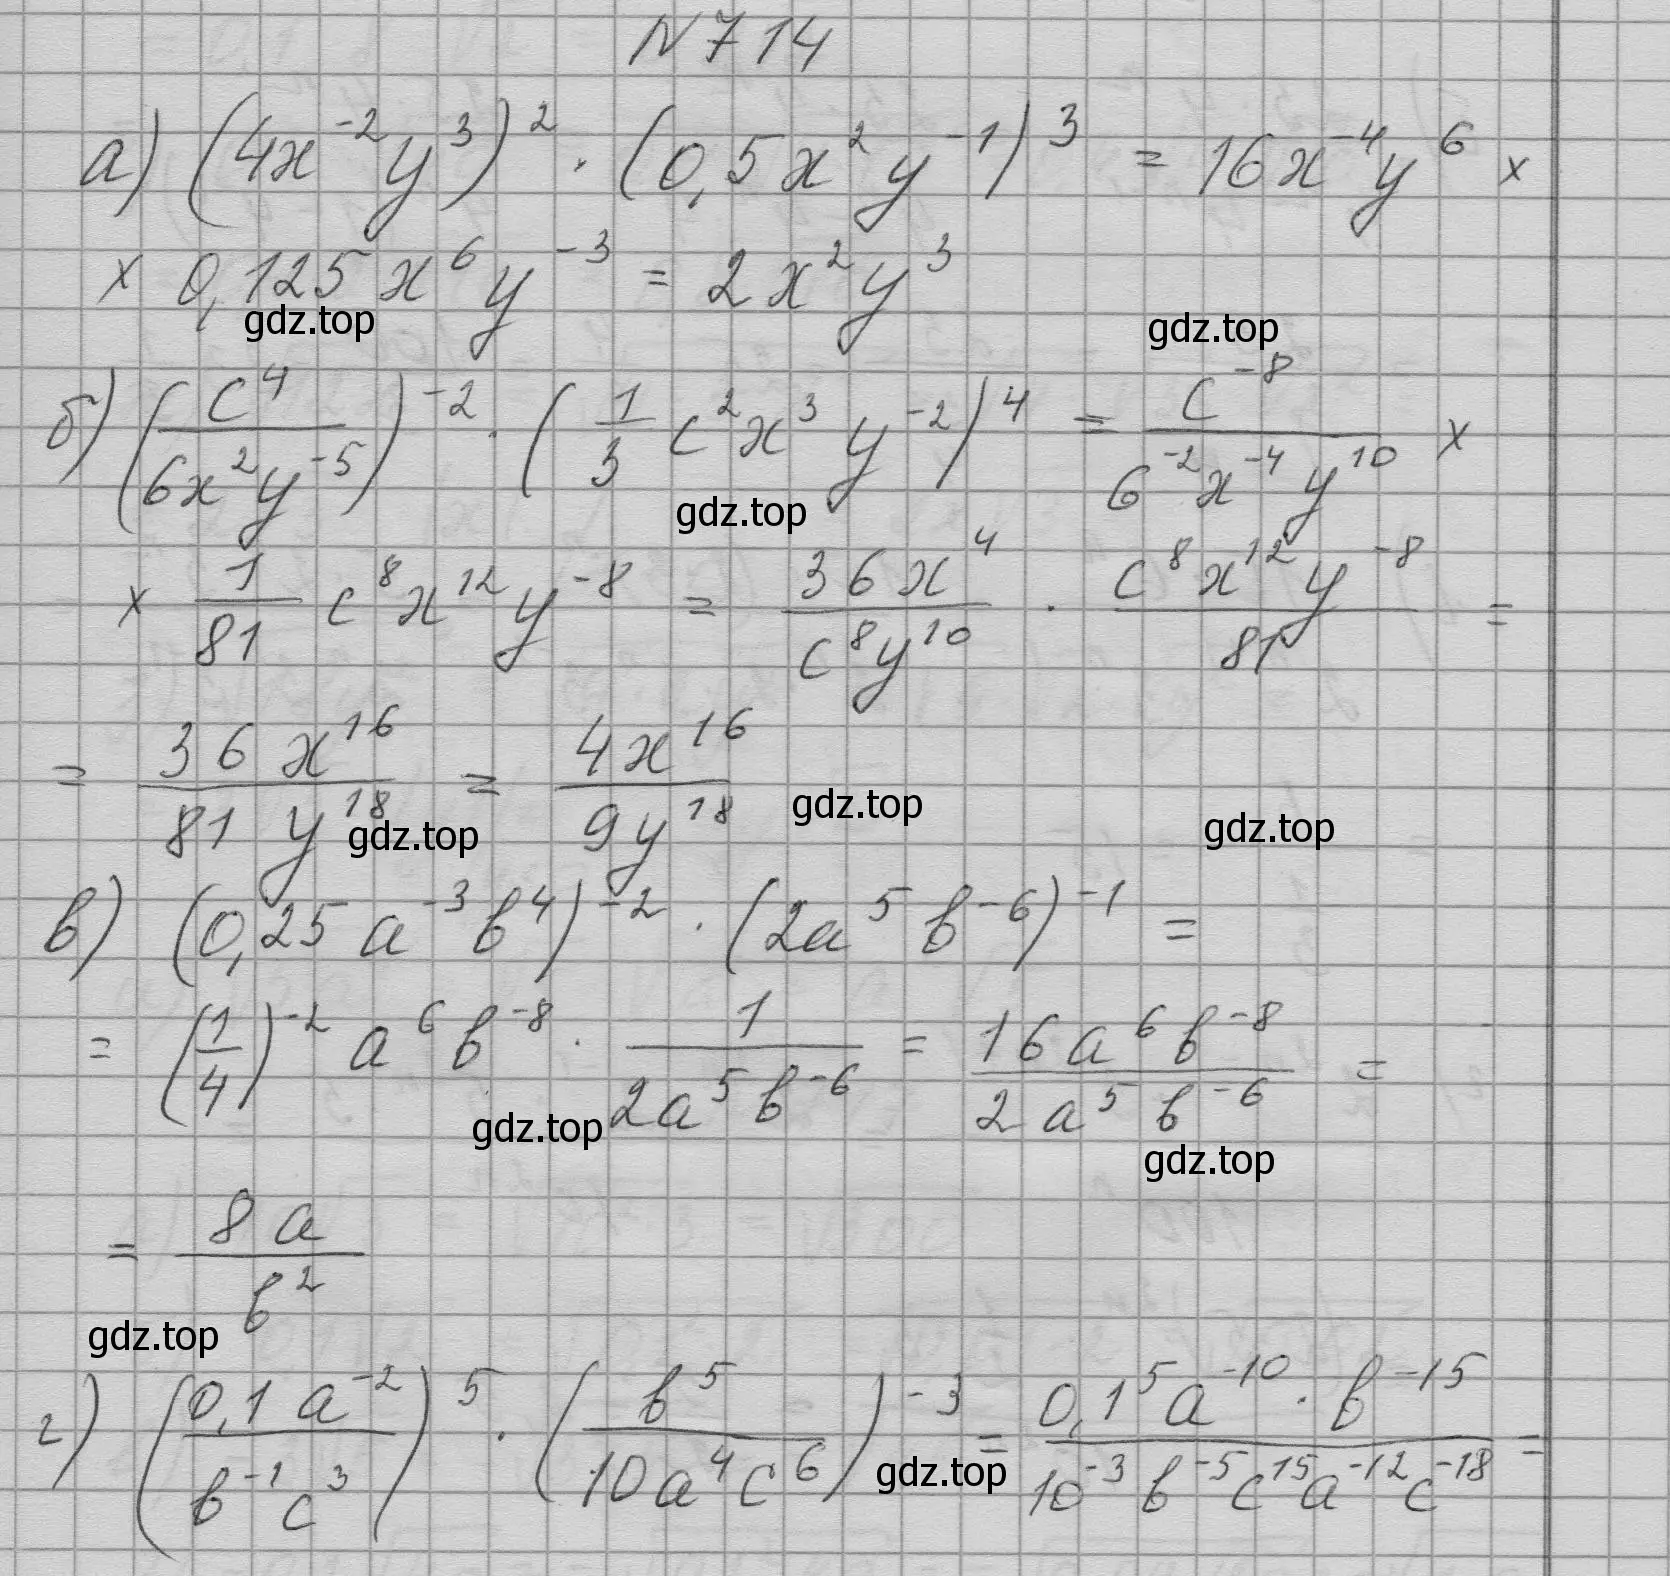 N714
а) (4x⁻²y³)² · (0,5x²y⁻¹)³ = 16x⁻⁴y⁶ ×
× 0,125x⁶y⁻³ = 2x²y³
gdz.top gdz.top
б) (c⁴/(6x²y⁻⁵))⁻² · (1/3 c²x³y⁻²)⁴ = c⁻⁸/(6⁻²x⁻⁴y¹⁰) ×
gdz.top
× 1/81 c⁸x¹²y⁻⁸ = 36x⁴/(c⁸y¹⁰) · c⁸x¹²y⁻⁸/81 =
= 36x¹⁶/(81y¹⁸) = 4x¹⁶/(9y¹⁸)
gdz.top gdz.top gdz.top
в) (0,25a⁻³b⁴)⁻² · (2a⁵b⁻⁶)⁻¹ =
= (1/4)⁻² a⁶b⁻⁸ · 1/(2a⁵b⁻⁶) = 16a⁶b⁻⁸/(2a⁵b⁻⁶) =
gdz.top gdz.top
= 8a/b²
gdz.top
г) (0,1a⁻²/(b⁻¹c³))⁵ · (b⁵/(10a⁴c⁶))⁻³ = 0,1⁵a⁻¹⁰ · b⁻¹⁵/(10⁻³b⁻⁵c¹⁵a⁻¹²c⁻¹⁸) =
gdz.top